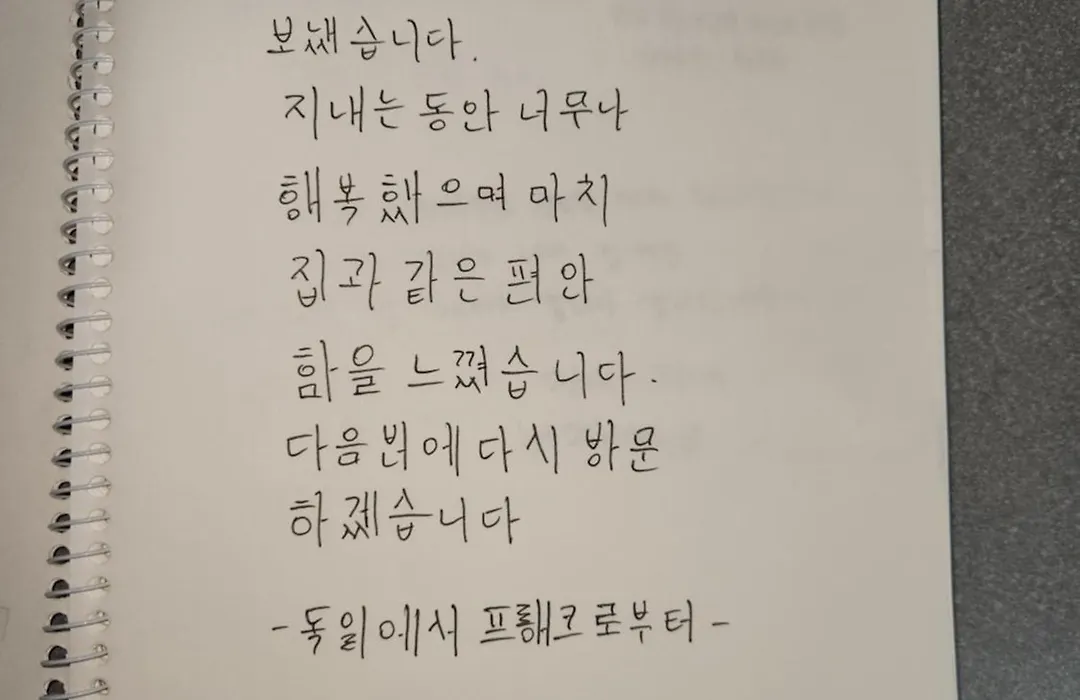 보냈습니다.
지내는 동안 너무나
행복했으며 마치
집과 같은 편안
함을 느꼈습니다.
다음번에 다시 방문
하겠습니다
-독일에서 프랭크로부터-